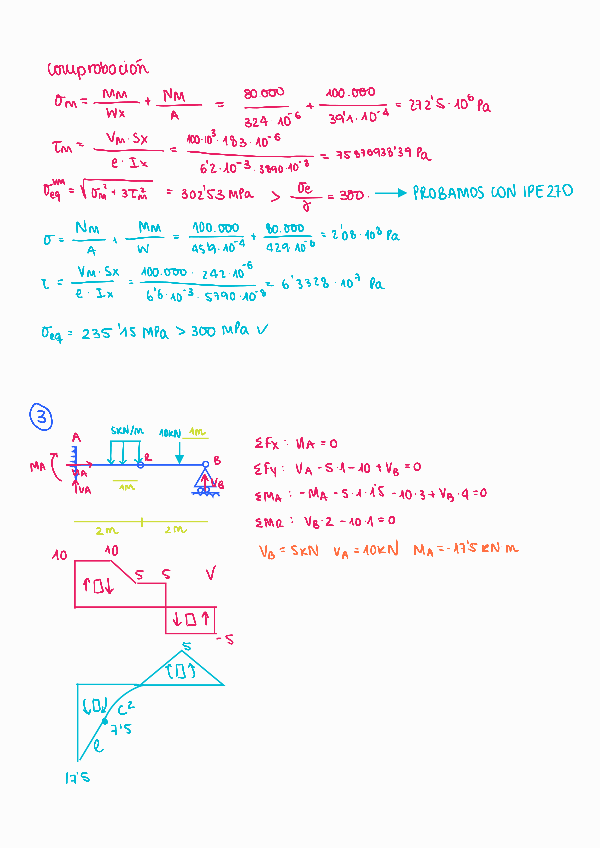 comprobación
σM = MM/Wx + NM/A = 80.000/324·10^-6 + 100.000/39'1·10^-4 = 272'5·10^6 Pa
τM = VM·Sx/e·Ix = 100·10^3·183·10^-6/6'2·10^-3·3890·10^-8 = 75870938'39 Pa
σeq^VM = √σM²+3τM² = 302'53 MPa > σe/γ = 300. → PROBAMOS CON IPE 270
σ = NM/A + MM/W = 100.000/45'9·10^-4 + 80.000/429·10^-6 = 2'08·10^8 Pa
τ = VM·Sx/e·Ix = 100.000·242·10^-6/6'6·10^-3·5790·10^-8 = 6'3328·10^7 Pa
σeq = 235'15 MPa > 300 MPa √
3
A 5KN/m R 10KN 1m B
MA NA VA 1m VB
2m 2m
ΣFx: NA = 0
ΣFy: VA - 5·1 - 10 + VB = 0
ΣMA: -MA - 5·1·1'5 - 10·3 + VB·4 = 0
ΣMR: VB·2 - 10·1 = 0
VB = 5KN VA = 10KN MA = -17'5 KN m
10 10 5 5 V
↑□↓
↓□↑
-5
5
↑□↑
↓□↓ C²
7'5
l
17'5